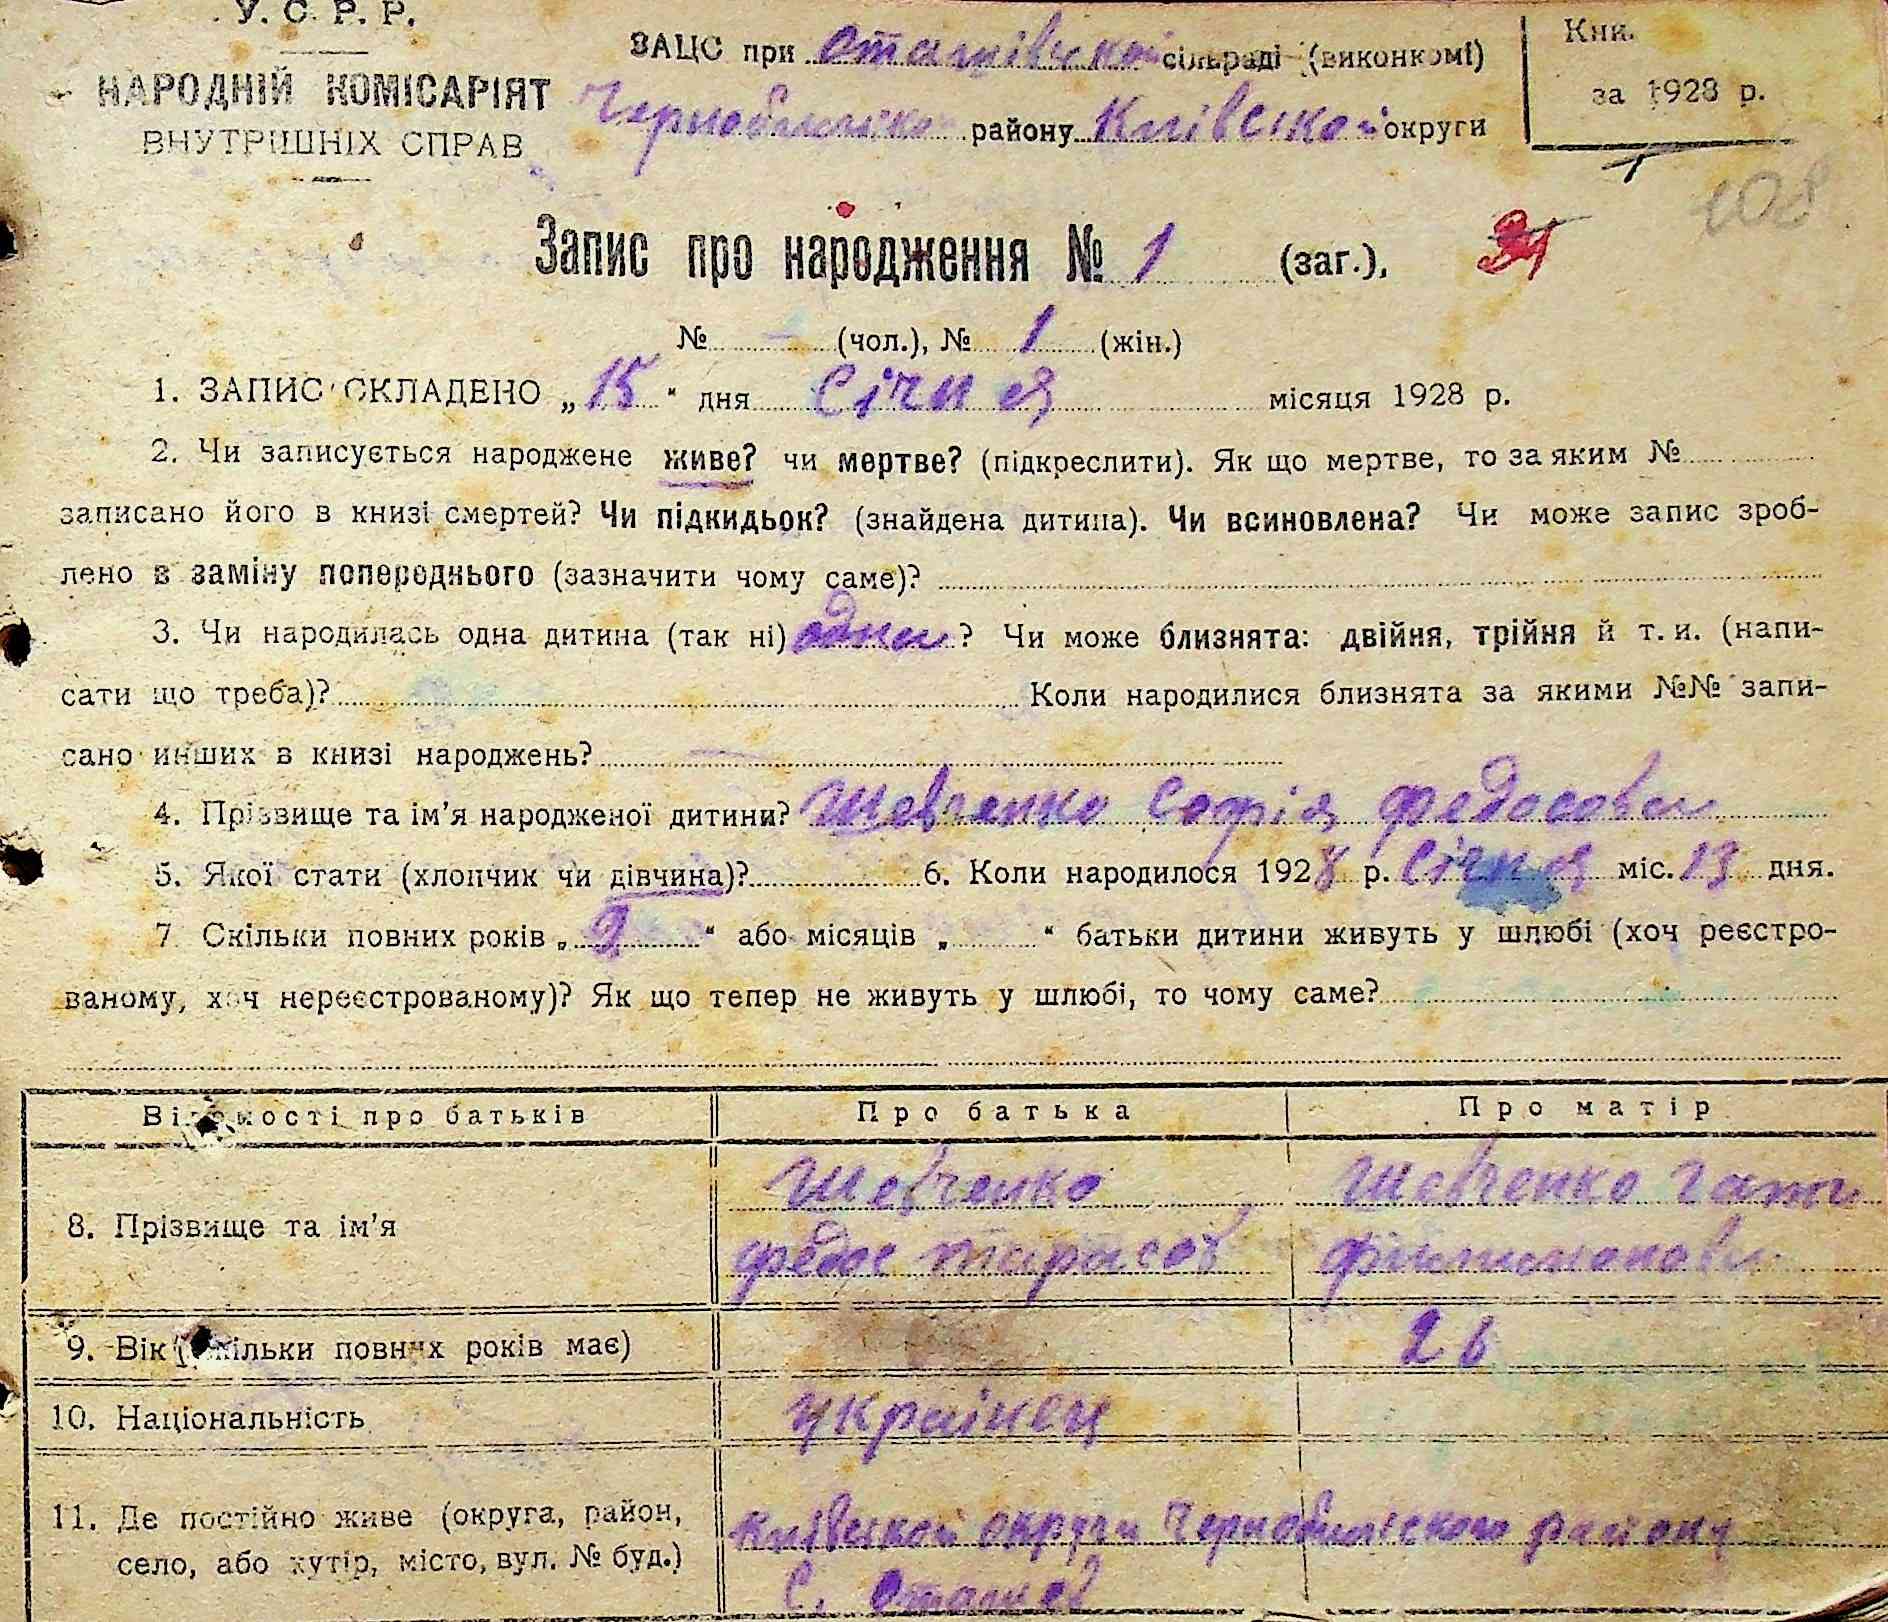 У. С. Р. Р.
НАРОДНІЙ КОМІСАРІЯТ
ВНУТРІШНІХ СПРАВ
ЗАЦС при Оташівской сільраді (виконкомі)
Чернобильско району Київской округи
Кни.
за 1928 р.
108
Запис про народження № 1 (заг.),
№ – (чол.), № 1 (жін.)
1. ЗАПИС СКЛАДЕНО „15“ дня Січня місяця 1928 р.
2. Чи записується народжене живе? чи мертве? (підкреслити). Як що мертве, то за яким №
записано його в книзі смертей? Чи підкидьок? (знайдена дитина). Чи всиновлена? Чи може запис зроб-
лено в заміну попереднього (зазначити чому саме)?
3. Чи народилась одна дитина (так ні) одна? Чи може близнята: двійня, трійня й т. и. (напи-
сати що треба)? Коли народилися близнята за якими №№ запи-
сано инших в книзі народжень? —
4. Прізвище та ім’я народженої дитини? Шевченко Софія Федосовна
5. Якої стати (хлопчик чи дівчина)? 6. Коли народилося 1928 р. Січня міс. 13 дня.
7. Скільки повних років „2“ або місяців „ “ батьки дитини живуть у шлюбі (хоч реєстро-
ваному, хоч нереєстрованому)? Як що тепер не живуть у шлюбі, то чому саме?
Відомості про батьків Про батька Про матір
8. Прізвище та ім’я
Шевченко
Федос Тарасов
Шевченко
9. Вік (скільки повних років має) 26
10. Національність українец
11. Де постійно живе (округа, район,
село, або хутір, місто, вул. № буд.)
Київской округи Чернобильского району
С. Оташев